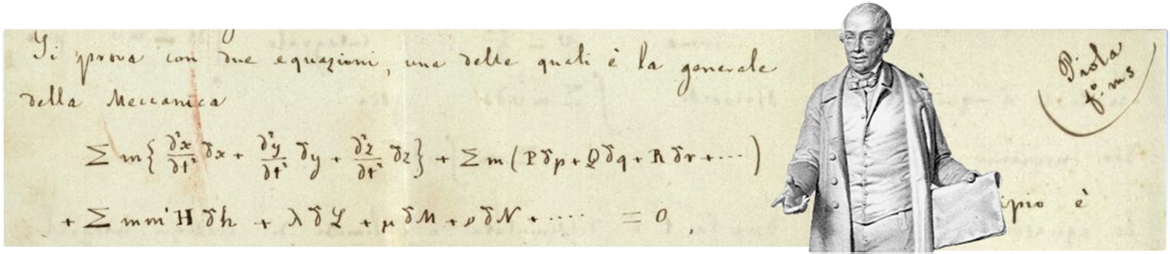 Si prova con due equazioni, una delle quali è la generale
della Meccanica
Σ m { δ²x/δt² δx + δ²y/δt² δy + δ²z/δt² δz } + Σ m ( P δp + Q δq + R δr + ···· )
+ Σ mm' H δh + λ δL + μ δM + ν δN + ····· = 0,
ipio è
Piola
fo. ms